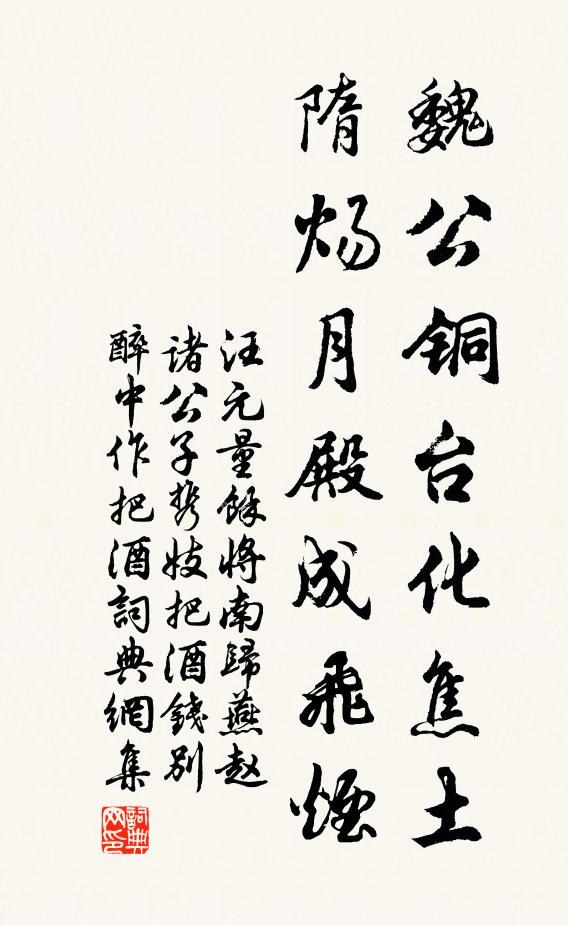 魏公铜台化焦土
隋炀月殿成飛煙
汪元量餘将南歸燕赵
诸公子携妓把酒錢别
醉中作把酒詞典網集
詞典
网印